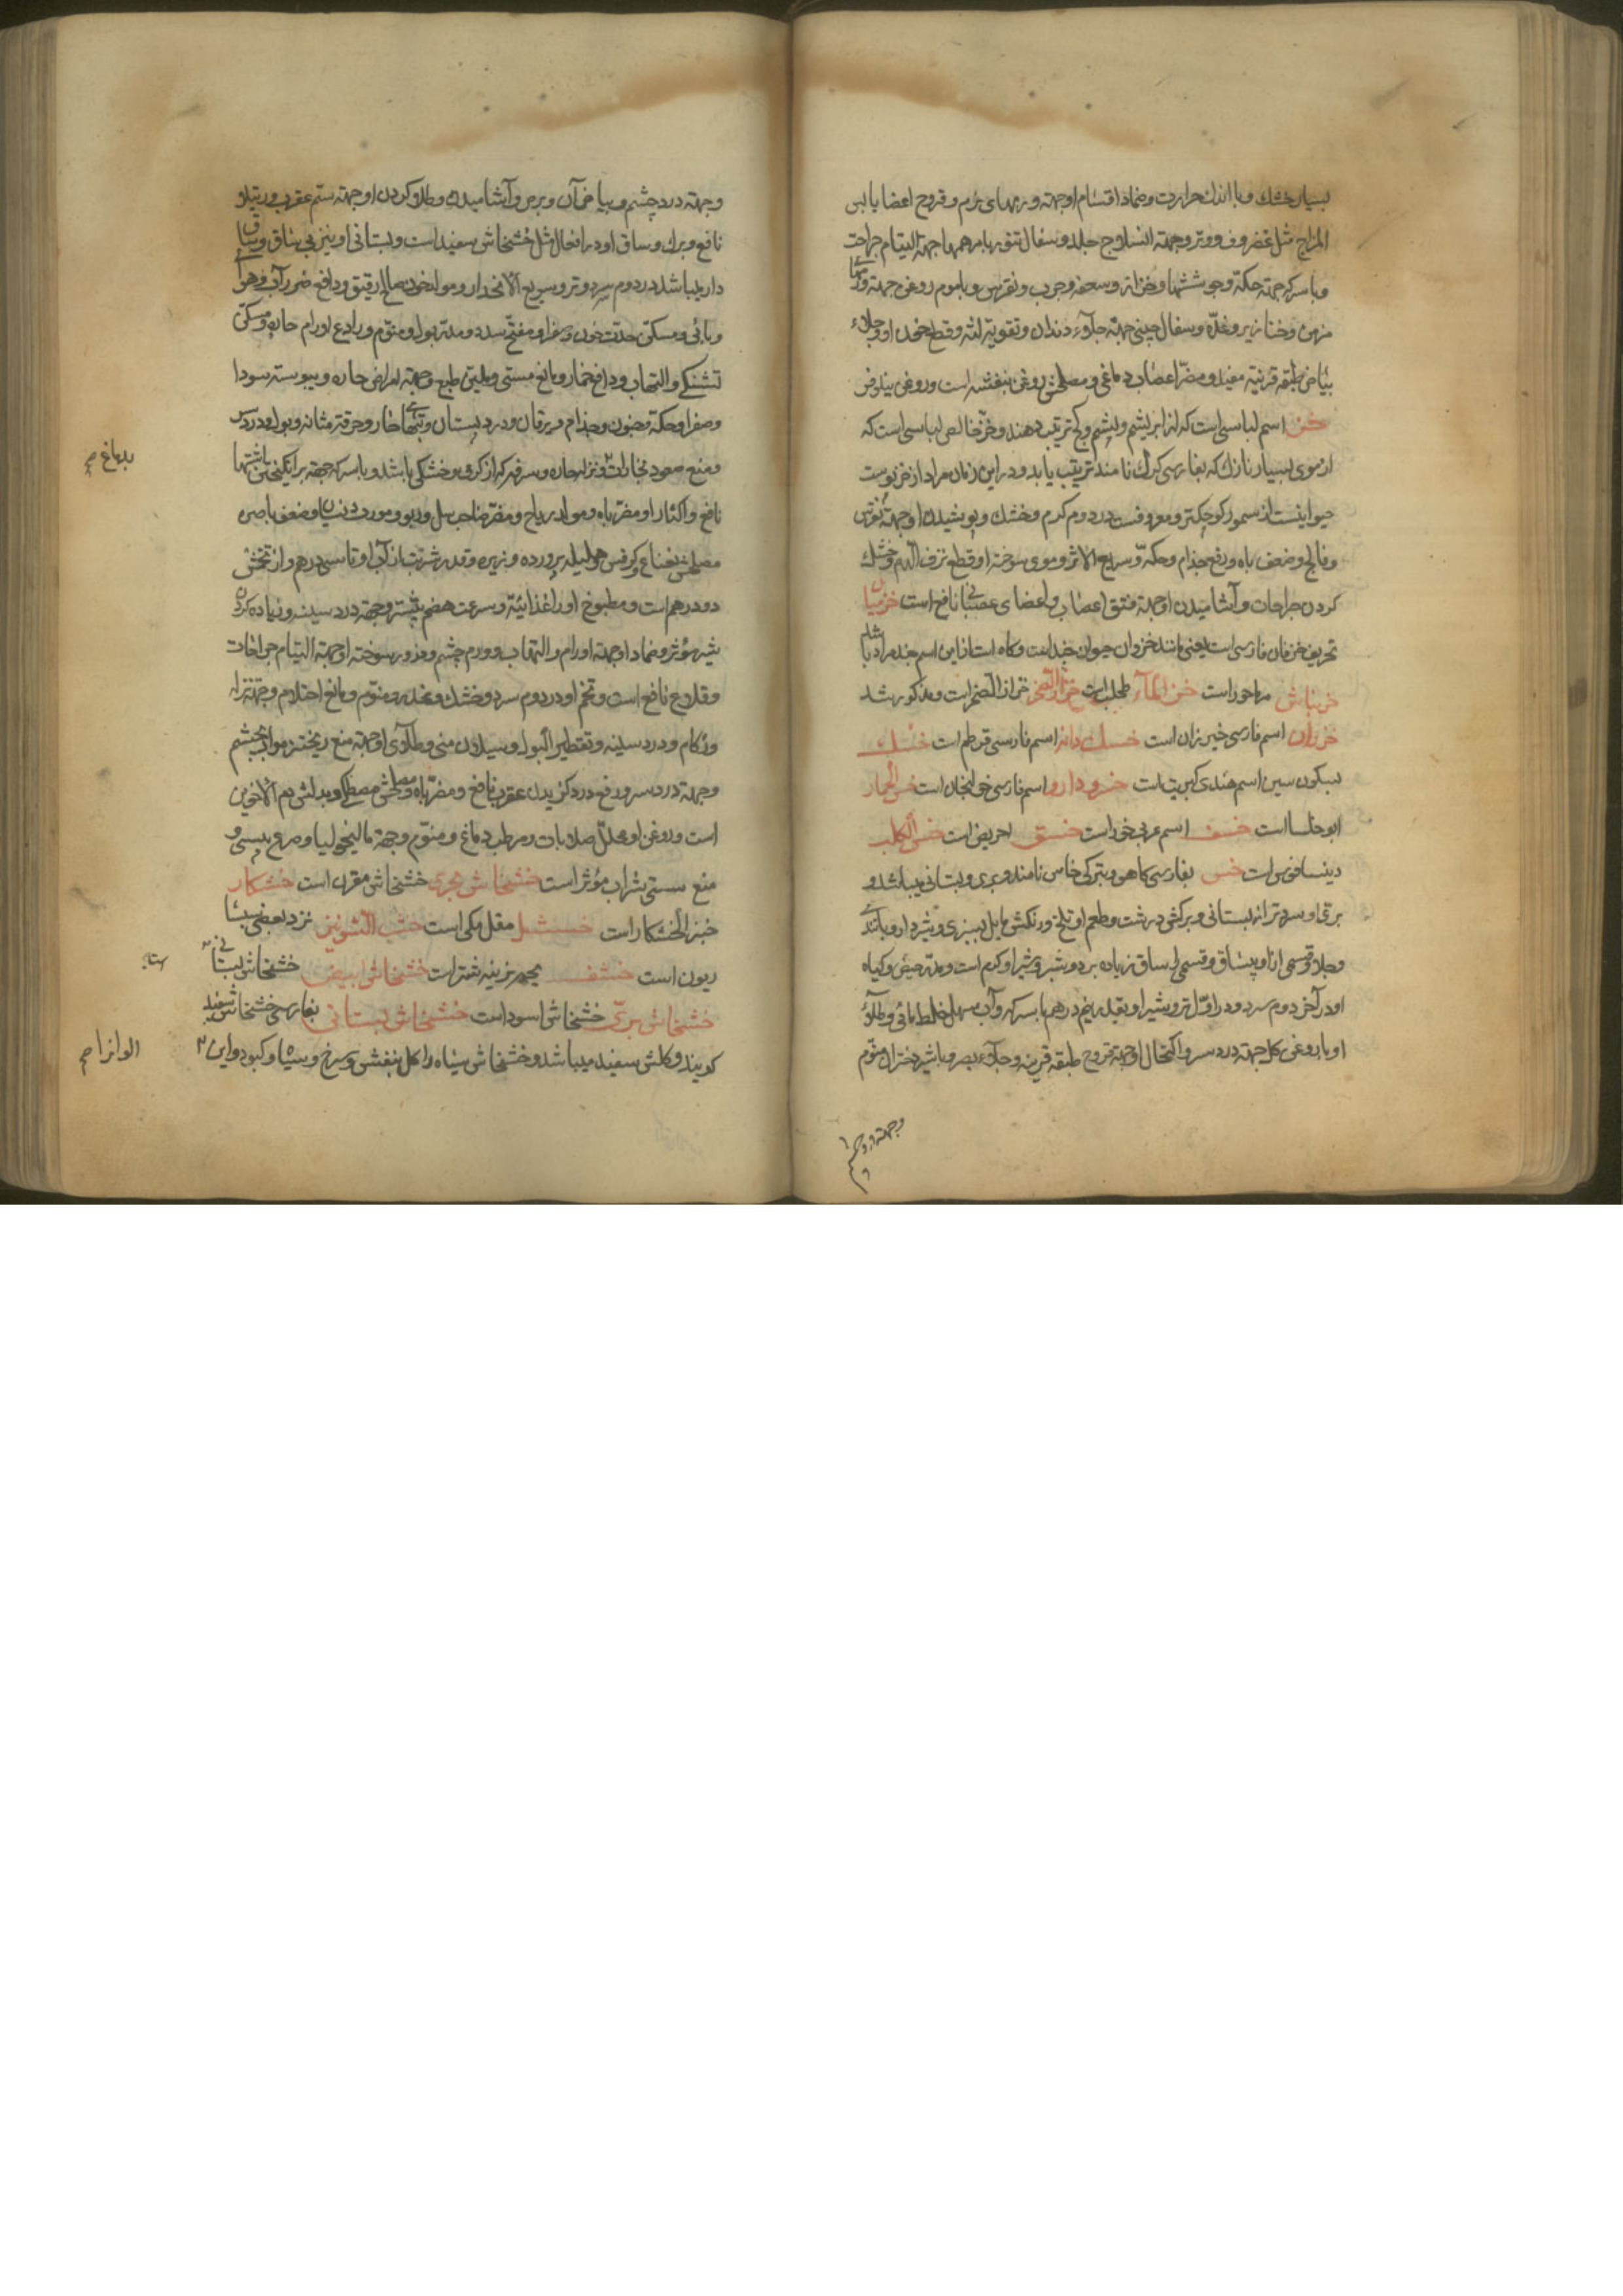 بسیار خشك و با اندك حرارت و ضماد اقسام او جهته ورمهای نرم و قروح اعضا یابس
المزاج مثل غضروف و وتر و جهته انسلاج جلد و سفال تنور با مرهمها جهته التیام جراحت
و با سرکه جهته حکّه و جوششها و حزازه و سعفه و جرب و نقرس و با موم روغن جهته ورمها
مزمن و خنازیر و غدّه و سفال چینی جهته جلآء دندان و تقویة لثه و قطع خون او و جلاء
بیاض طبقه قرنیّه مفید و مضرّ اعضاب دماغی و مصلحش روغن بنفشه است و روغن نیلوفر
خز اسم لباسی است که از ابریشم و پشم و کج ترتیب دهند و خزّ خالص لباسی است که
از موی بسیار نازك که بفارسی کرك نامند ترتیب یابد و در این زمان مراد از خز پوست
حیوانیست از سمور کوچکتر و معروفست در دوم کرم و خشك و پوشیدن او جهته نقرس
و فالج و ضعف باه و رفع جذام و حکّه و سریع الاثر و موی سوخته او قطع نزف الدم و خشك
کردن جراحات و آشامیدن او جهته فتق اعصاب و اعضای عصبانی نافع است خزمیان
تحریف خزمان فارسی است یعنی مانند خز و آن حیوان جندست و کاه است از این اسم جند مراد باشد
خرنباش مرماحوز است خز المآء طحلب است خزاز الصخر حزاز الصخر است و مذکور شد
خزران اسم فارسی خیرزان است خسك دانه اسم فارسی قرطم است خسك
بسکون سین اسم هندی کبریت است خسرودارو اسم فارسی خولنجان است خس الحمار
ابو خلسا است خسف اسم عربی خوز است خسق احریض است خس الکلب
دینساقوس است خس بفارسی کاهو و بترکی خاس نامند و بری و بستانی میباشد و
بری او سردتر از بستانی و برکش درشت و طعم او تلخ و رنکش مایل بسبزی و شیردار و بآنندکی
و جلا و قسمی از او بیساق و قسمی را ساق زیاده بر دو شبر و شیر او کرم است و مدرّ حیض و کیاه
او در آخر دوم سرد و در اوّل تر و شیر او بقدر نیم درهم با سرکه و آب مسهل خلط مائی و طلآء
او با روغن کل جهته درد سر و اکتحال او جهته قروح طبقه قرنیه و جلآء بصر و با شیر دختران منوّم
و جهته
و جهته درد چشم و بیاض آن و برص و آشامیدن و طلا کردن او جهته سمّ عقرب و رتیلا
نافع و برك و ساق او در افعال مثل خشخاش سفید است و بستانی او نیز بی ساق و ساق
دار میباشد در دوم سرد و تر و سریع الانحدار و مولد خون صالح رقیق و دافع ضرر آب و هوای
وبائی و مسکّن حدّت خون و صفرا و مفتّح سدد و مدرّ بول و منوّم و رادع اورام حارّه و مسکّن
تشنکی و التهاب و دافع خمار و مانع مستی و ملیّن طبع و جهته امراض حاره و یبوسته سودا
و صفرا و حکّه و جنون و جذام و یرقان و درد پستان و تبهای حار و حرقة مثانه و بول و درد سر
و منع صعود بخارات و نزله حاره و سرفه که از کرمی و خشکی باشد و با سرکه جهته برانکیختن اشتها
نافع و اکثار او مضرّ باه و مولد ریاح و مضرّ صاحب سل و ربو و مورث نسیان و ضعف باصره
مصلحش نعناع و کرفس و هلیله پرورده و زیره و قدر شربت از آب او تا سی درهم و از تخمش
دو درهم است و مطبوخ او را غذائیّة و سرعت هضم بیشتر و جهته درد سینه و زیاده کردن
شیر مؤثر و ضماد او جهته اورام و التهاب و ورم چشم و ذرور سوخته او جهته التیام جراحات
و قلاع نافع است و تخم او در دوم سرد و خشك و مخدر و منوّم و مانع احتلام و جهته نزله
و زکام و درد سینه و تقطیر البول و سیلان منی و طلآی او جهته منع ریختن مواد بچشم
و جهته درد سر و رفع درد کزیدن عقرب نافع و مضرّ باه و مصلحش مصطکی و بدلش دم الاخوین
است و روغن او محلّل صلابات و مرطب دماغ و منوّم و جهته مالیخولیا و صرع یبسی و
منع سستی شراب مؤثر است خشخاش بحری خشخاش مقرن است خشکار
خبز الخشکار است خسشل مقل مکی است خشب الشونیز نزد بعضی
ریون است خشف بچه نرینه شتر است خشخاش ابیض خشخاش بستانی
خشخاش برّی خشخاش اسود است خشخاش بستانی بفارسی خشخاش سفید
کویند و کلش سفید میباشد و خشخاش سیاه را کل بنفش و سرخ و سیاه و کبود و این
بدماغ صح
الوانرا صح